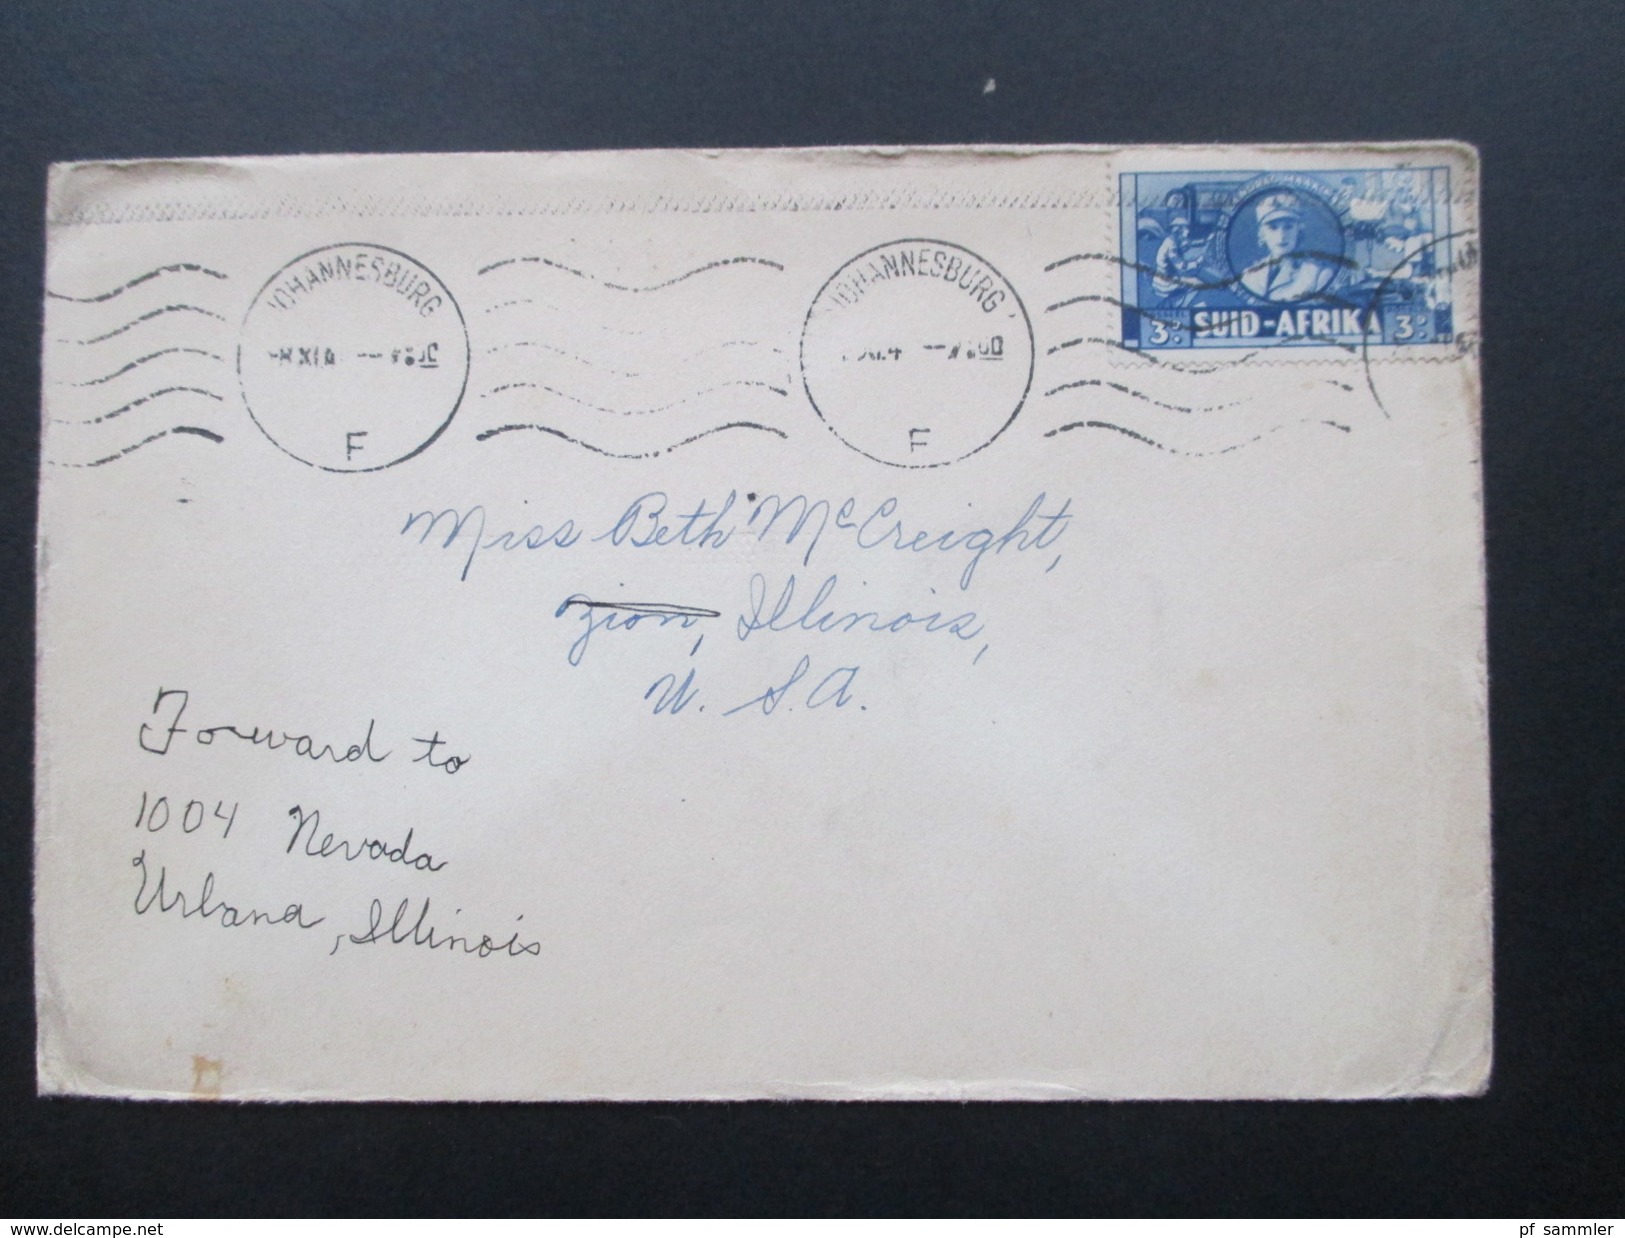 JOHANNESBURG
JOHANNESBURG
F
F
3D SUID-AFRIKA 3D
Miss Beth McCreight,
Zion, Illinois,
U. S. A.
Forward to
1004 Nevada
Urbana, Illinois
www.delcampe.net
pf sammler